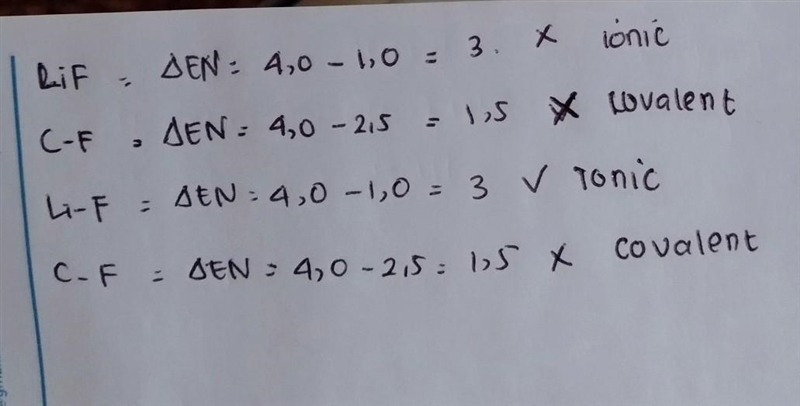 LiF = ΔEN = 4,0 - 1,0 = 3. x ionic
C-F = ΔEN = 4,0 - 2,5 = 1,5 x covalent
Li-F = ΔEN = 4,0 - 1,0 = 3 ✓ Ionic
C-F = ΔEN = 4,0 - 2,5 = 1,5 x covalent